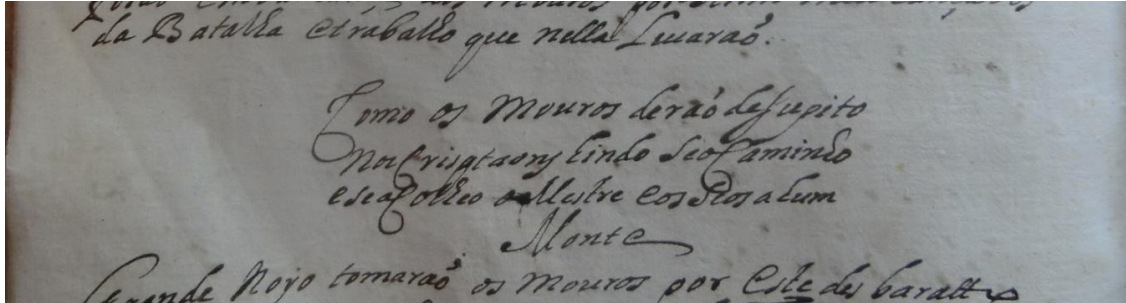 os Mouros por
da Batalha e trabalho que nella Leuaraõ.
Como os Mouros deraõ de supito
Nos Crisptaons hindo seo Caminho
e se a Colheo o Mestre Cos Seos a hum
Monte
Grande Nojo tomaraõ os Mouros por Este des baratto